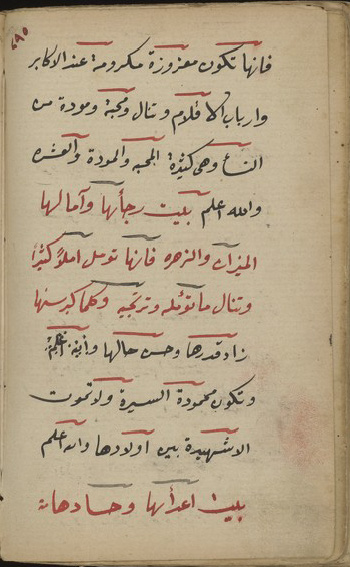 ٤٩٥
فانها تكون معزوزة مكرومة عند الاكابر
وارباب الاقلام وتنال ومحبة ومودة من
النسأ وهى كثيرة المحبه والمودة والعشره
والله اعلم بيت رجأها وآمالها
الميزان والزهره فانها تومل املاً كثيراً
وتنال ما تؤمله وترتجيه وكلما كبر سنها
زاد قدرها وحسن حالها
وتكون محمودة السيرة ولا تموت
الا شهيدة بين اولادها والله اعلم
بيت اعدأئها وحسادها